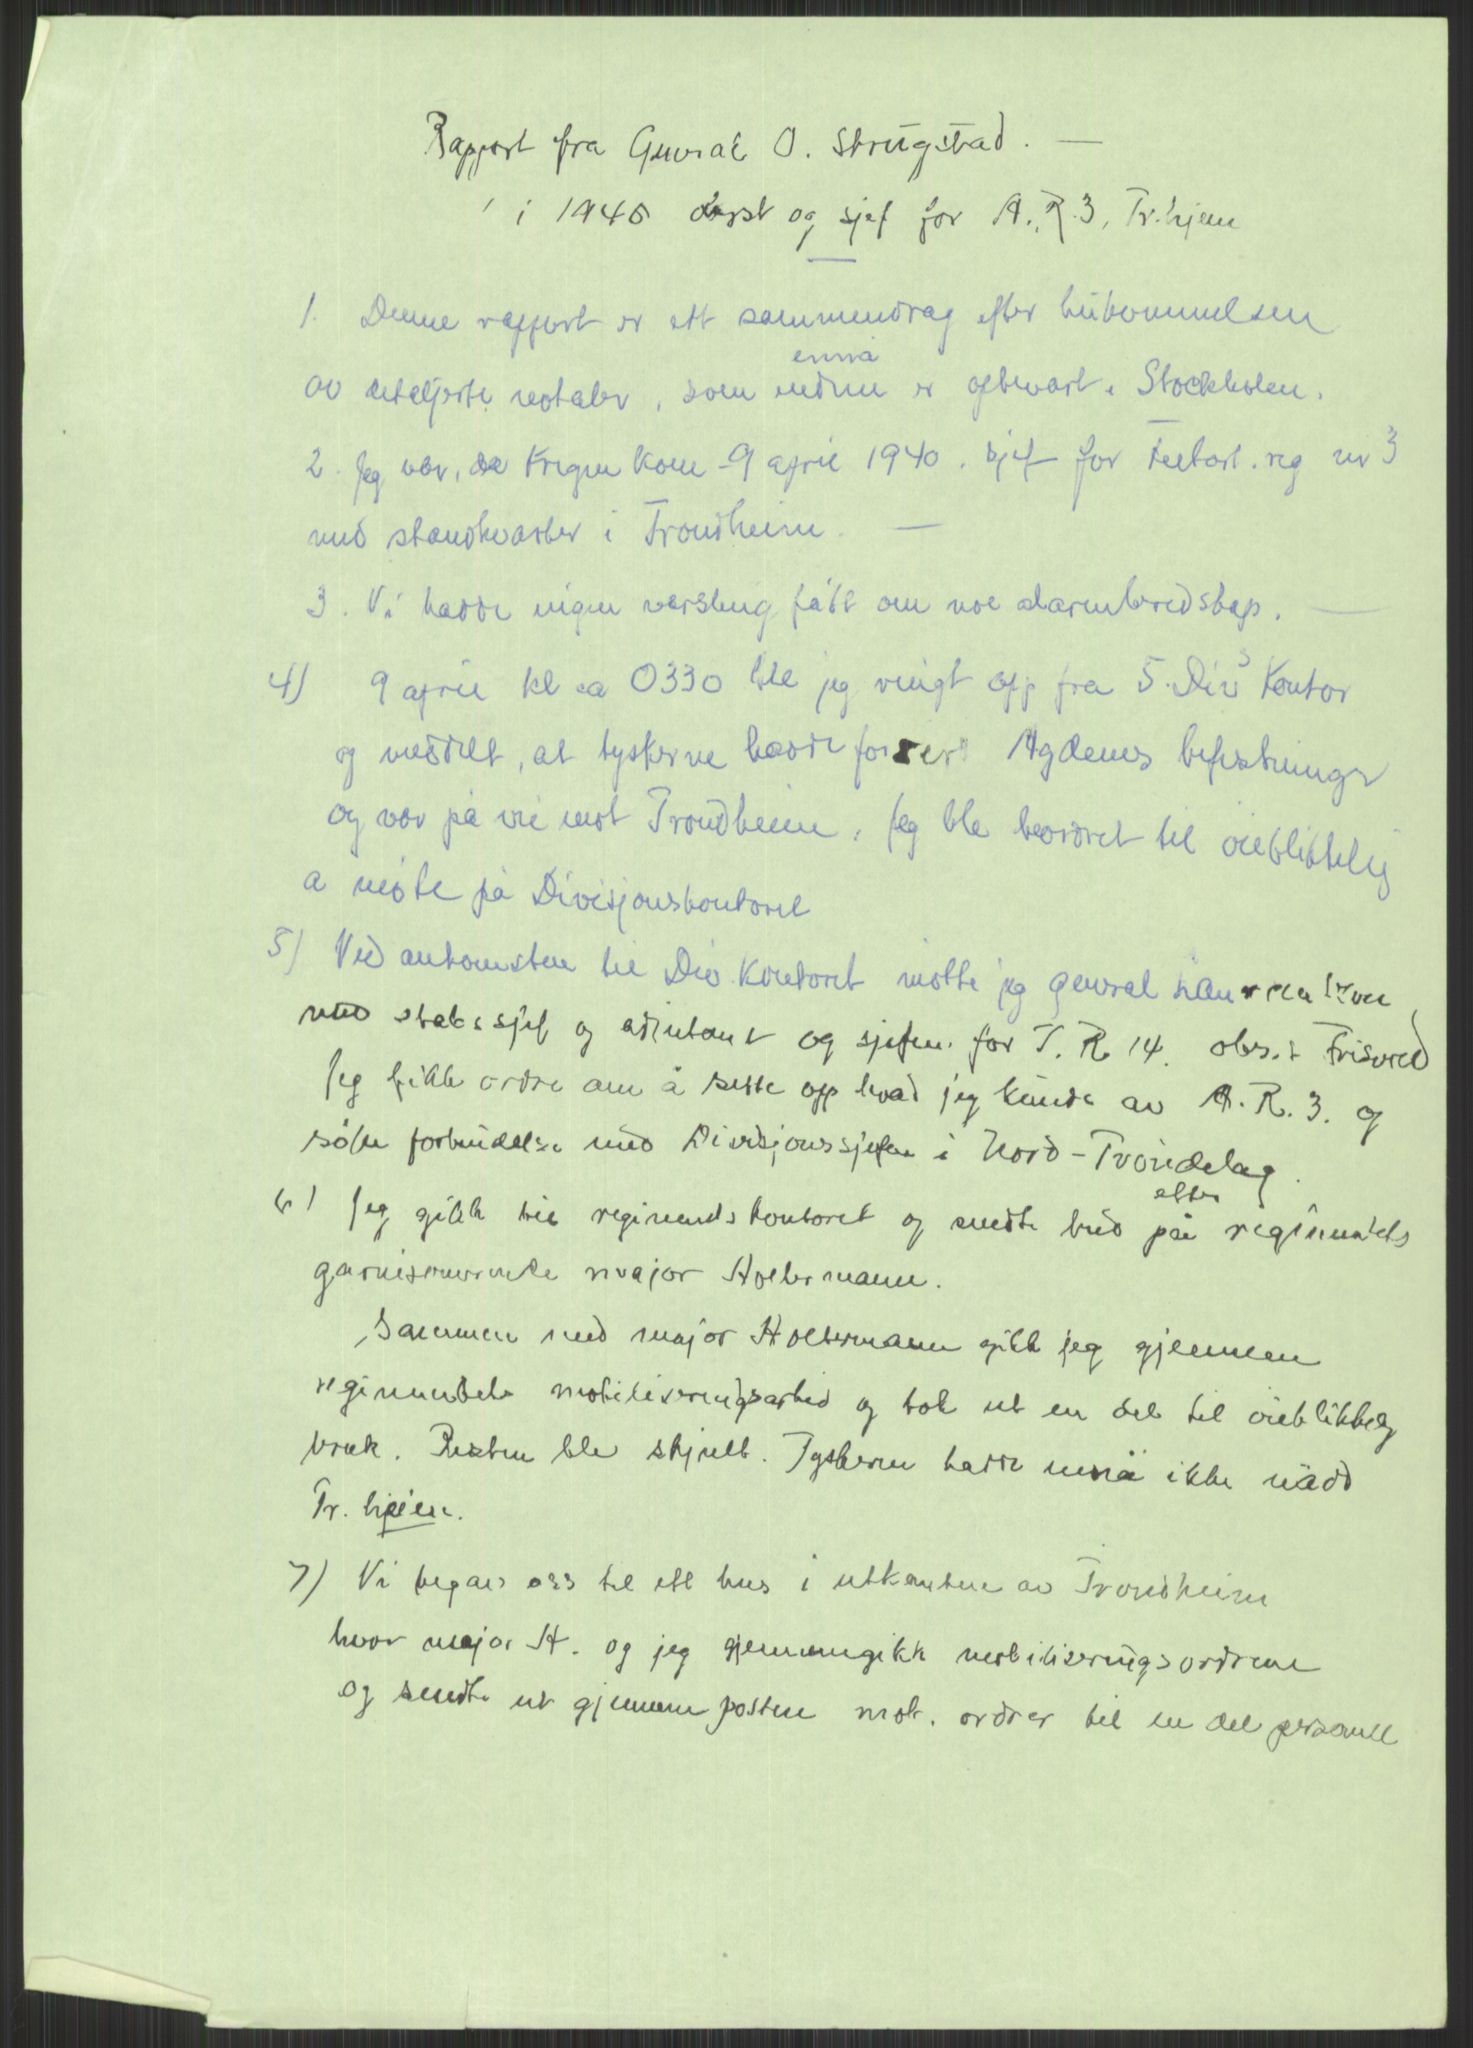 Rapport fra General O. Strugstad. —
i 1940 oberst og sjef for A.R.3, Tr.hjem
1. Denne rapport er ett sammendrag efter hukommelsen
av detaljerte notater, som ennå er opbevart i Stockholm.
2. Jeg var, da Krigen kom 9 april 1940. sjef for Feltart. reg nr 3
med standkvarter i Trondheim. —
3. Vi hadde ingen varsling fått om noe alarmberedskap. —
4) 9 april kl ca 0330 ble jeg ringt opp fra 5. Div^s Kontor
og meddelt, at tyskerne hadde forsert Agdenes befestninger
og var på vei mot Trondheim. Jeg ble beordret til øieblikkelig
a møte på Divisjonskontoret
5) Ved ankomsten til Div Kontoret møtte jeg general
med stabssjef og adjutant og sjefen for I.R 14. oberst Frisvold
Jeg fikk ordre om å sette opp hvad jeg kunde av A.R.3. og
søke forbindelse med Divisjonssjefen i Nord-Trøndelag.
6) Jeg gikk til regimentskontoret og sendte bud på efter regimentets
garnisonerende major Holtermann.
Sammen med major Holtermann gikk jeg gjennem
regimentets mobiliseringsarbeid og tok ut en del til øieblikkelig
bruk. Resten ble skjult. Tyskerne hadde ennå ikke nådd
Tr. hjem.
7) Vi begav oss til ett hus i utkanten av Trondheim
hvor major H. og jeg gjennomgikk mobiliseringsordrene
og sendte ut gjennem posten mob. ordrer til en del personell